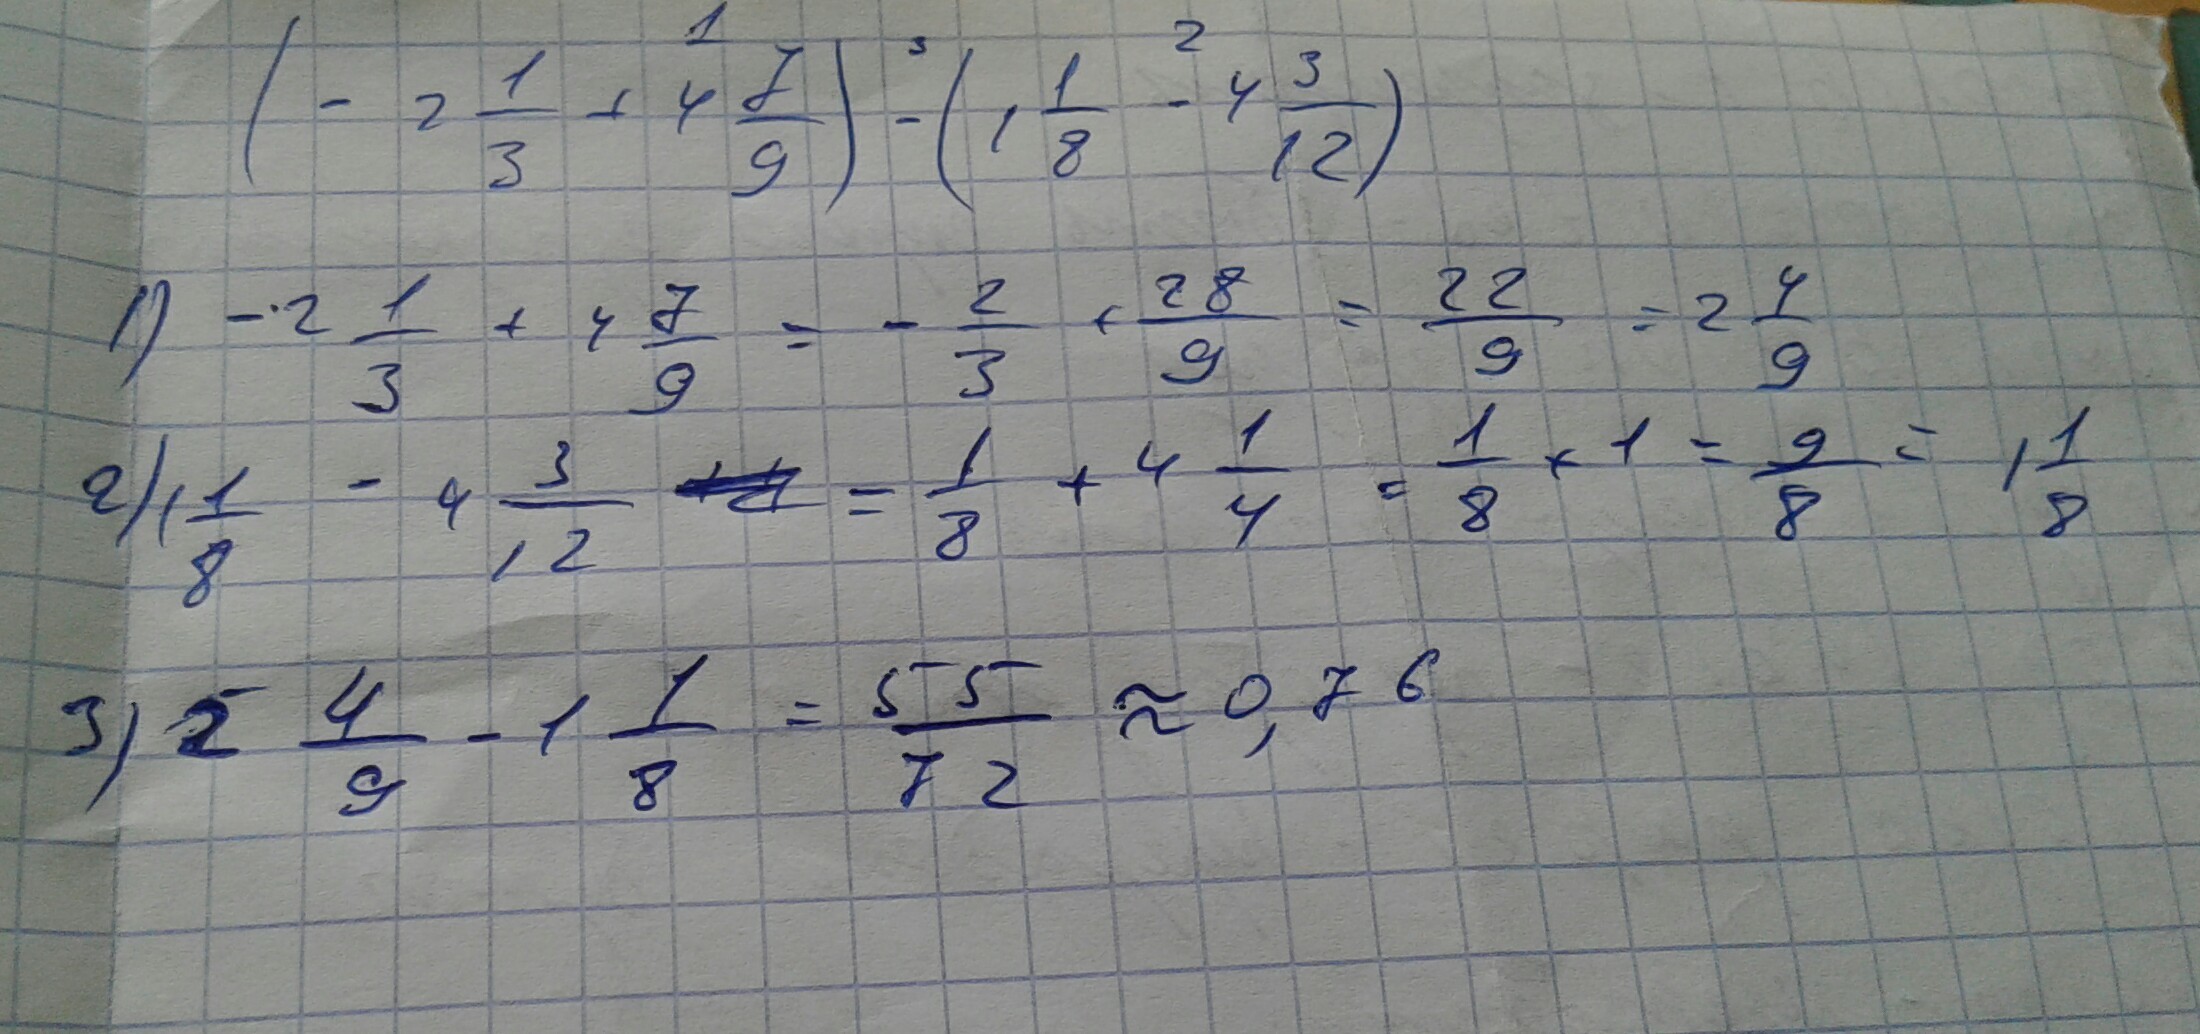 (- 2 1/3 + 4 7/9) - (1 1/8 - 4 3/12)
1 3 2
1) - 2 1/3 + 4 7/9 = - 2/3 + 28/9 = 22/9 = 2 4/9
2) 1 1/8 - 4 3/12 = 1/8 + 4 1/4 = 1/8 + 1 = 9/8 = 1 1/8
3) 2 4/9 - 1 1/8 = 55/72 ≈ 0,76